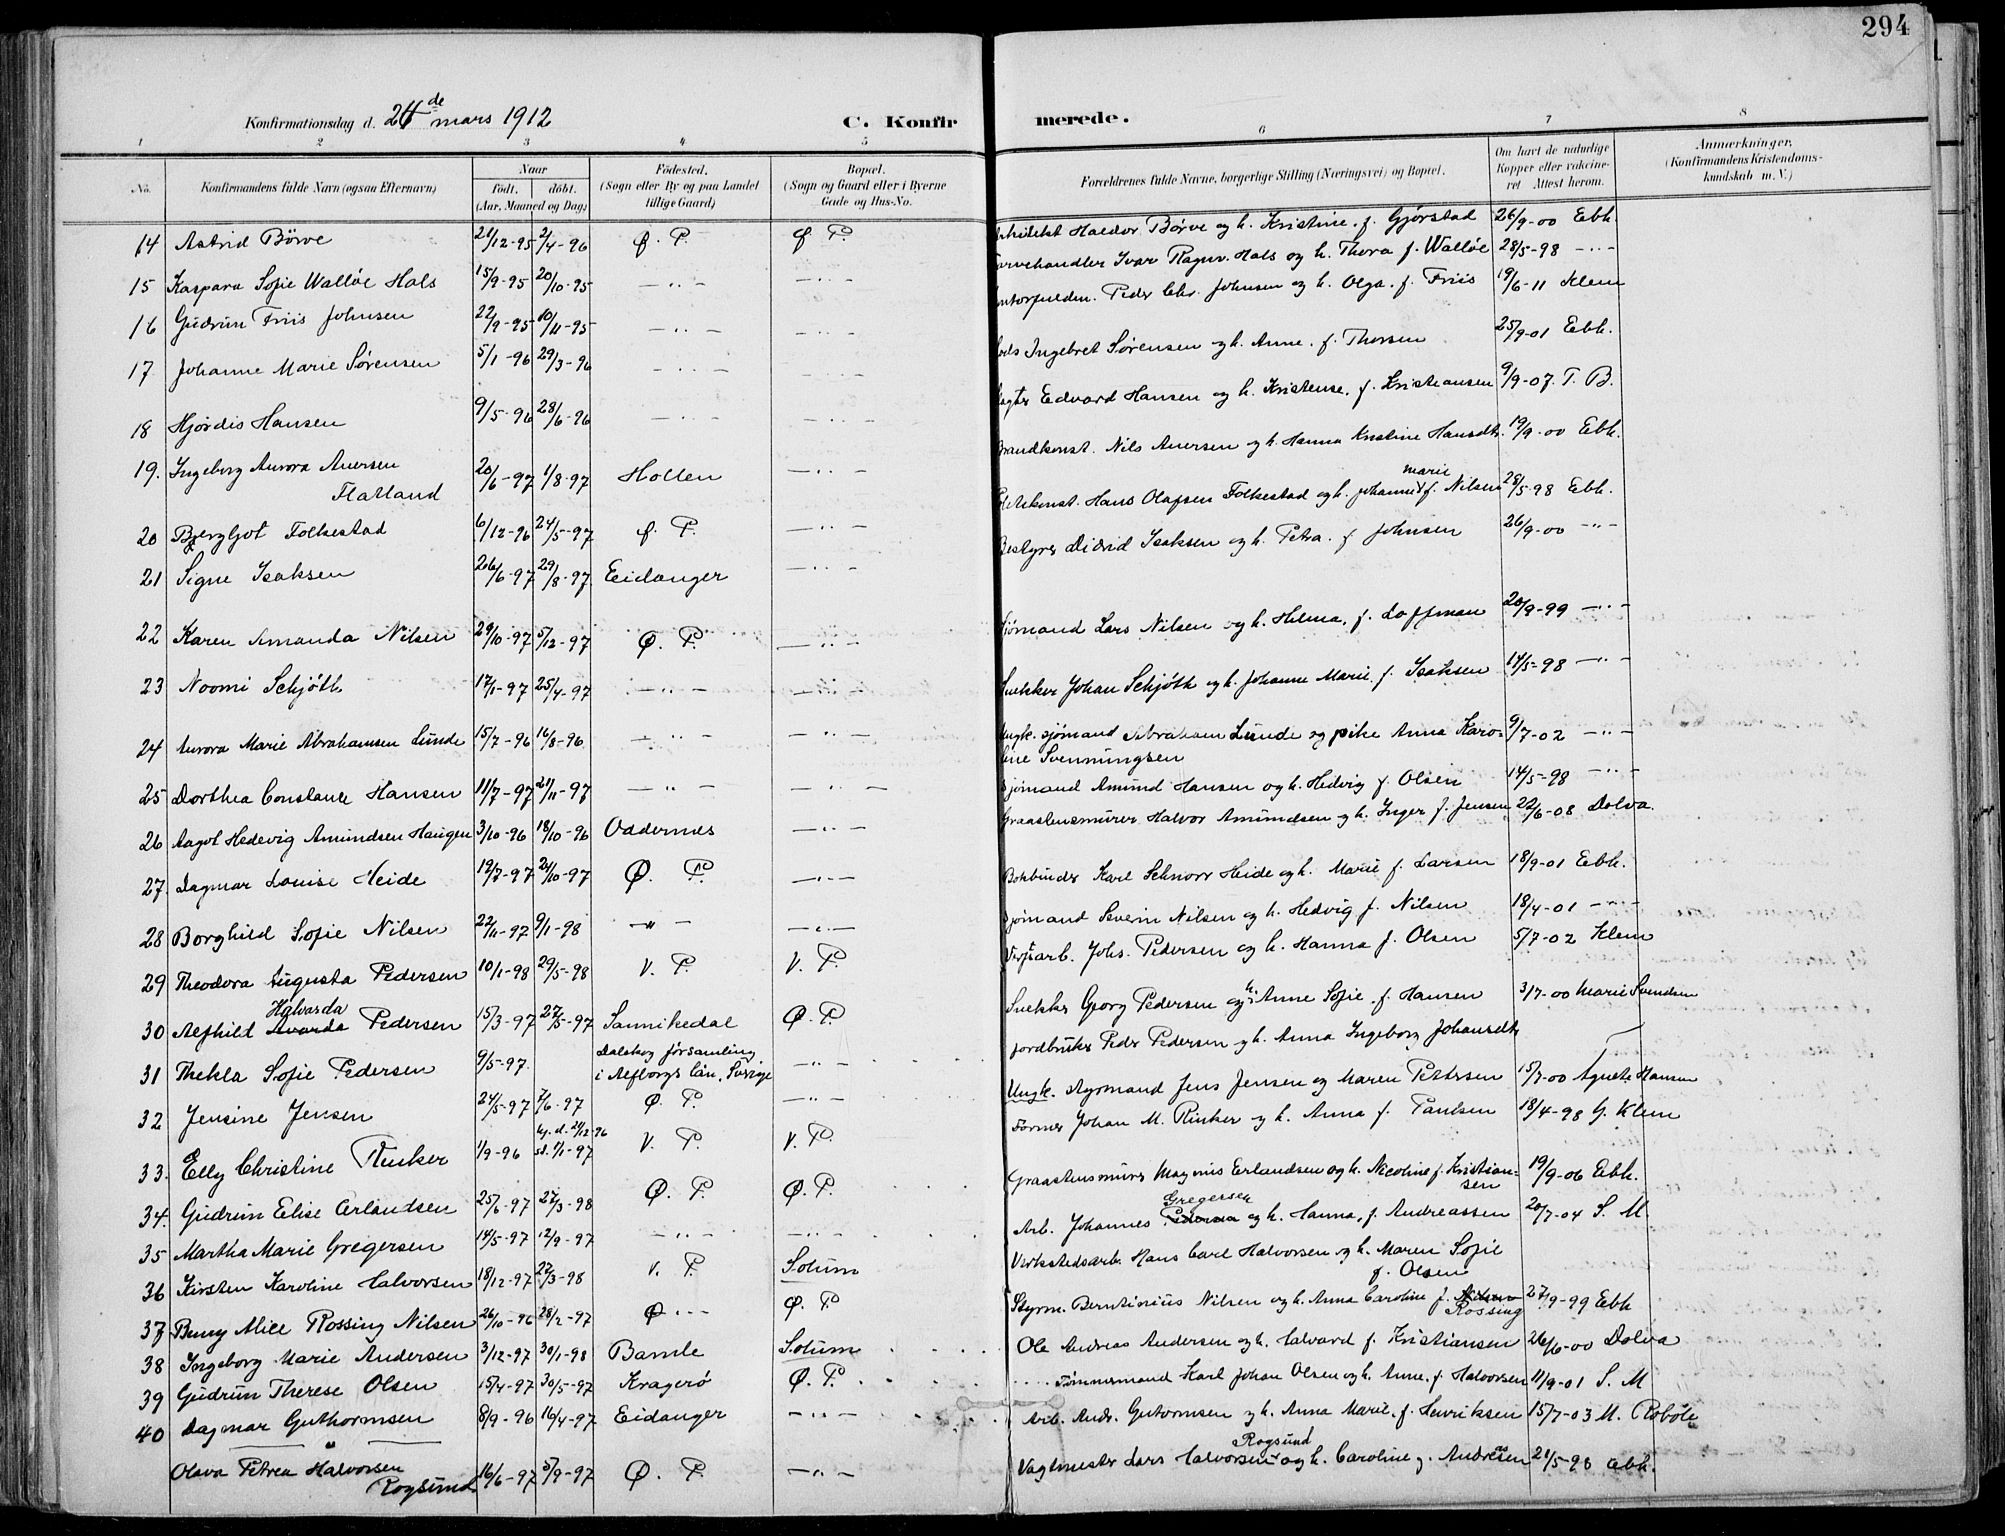 294
Konfirmationsdag d. 24de mars 1912
C. Konfir merede.
1 2 3 4 5 6 7 8
No.
Konfirmandens fulde Navn (ogsaa Efternavn)
Naar
født. døbt.
(Aar, Maaned og Dag)
Fødested.
(Sogn eller By og paa Landet
tillige Gaard)
Bopæl.
(Sogn og Gaard eller i Byerne
Gade og Hus-No.
Forældrenes fulde Navne, borgerlige Stilling (Næringsvei) og Bopæl.
Om havt de naturlige
Kopper eller vakcine-
ret Attest herom.
Anmerkninger,
(Konfirmandens Kristendoms-
kundskab m. V.)
14 Astrid Börve 21/12-95 2/4-96 Ø. P. Ø P. Haldor Börve og h. Kristine, f. Gjörstad 26/9-00 Ebh.
15 Kaspara Sofie Walløe Hals 15/9-95 20/10-95 — " — — " — Ivar Ragnv. Hals og h. Thora f. Walløe 28/5-98 — " —
16 Gudrun Friis Johnsen 22/9-95 10/11-95 — " — — " — Peder Chr. Johnsen og h. Olga. f. Friis 19/6-11 Klem
17 Johanne Marie Sørensen 5/1-96 29/3-96 — " — — " — Ingebret Sørensen og h. Anne. f. Thorsen 25/9-01 Ebh.
18 Hjørdis Hansen 9/5-96 28/6-96 — " — — " — Edvard Hansen og h. Kristense, f. Kristiansen 9/9-07. T. B.
19. Ingeborg Aurora Auersen
Flatland 20/6-97 1/8-97 Hollen — " — Brandkonst. Nils Auersen og h. Hanna Kristine Hansdtr. 19/9-00 Ebh.
20 Bergljot Folkestad 6/12-96 24/5-97 Ø. P. — " — Hans Olafsen Folkestad og h. Johanne marie f. Nilsen 28/5-98 Ebh.
21 Signe Isaksen 26/6-97 29/8-97 Eidanger — " — Bestyrer Didrid Isaksen og h. Petra. f Johnsen 26/9-00 — " —
22 Karen Amanda Nilsen 29/10-97 5/12-97 Ø. P. — " — Sjömand Lars Nilsen og h. Hilma, f. Loffman 20/9-99 — " —
23 Noomi Schjöth 17/1-97 25/4-97 — " — — " — Snekker Johan Schjöth og h. Johanne Marie f. Isaksen 14/5-98 — " —
24 Aurora Marie Abrahamsen Lunde 15/7-96 16/8-96 — " — — " — Ungk. sjömand Abraham Lunde og pike Anna Karo-
line Svenningsen 9/7-02 — " —
25 Dorthea Constance Hansen 11/7-97 21/11-97 — " — — " — Sjömand Amund Hansen og h. Hedvig f. Olsen 14/5-98 — " —
26 Aagot Hedevig Amundsen Haugen 3/10-96 18/10-96 Oddernes — " — Graastensmurer Halvor Amundsen og h. Inger f. Jensen 22/6-08 Dolva.
27. Dagmar Louise Heide 12/7-97 24/10-97 Ø. P. — " — Bokbinder Karl Schnorr Heide og h. Marie f. Larsen 18/9-01 Ebh.
28 Borghild Sofie Nilsen 22/11-97 9/1-98 — " — — " — Sjömand Severin Nilsen og h. Hedvig f. Nilsen 18/4-01 — " —
29 Theodora Augusta Pedersen 10/1-98 29/5-98 V. P. V. P. Verftarb. Johs. Pedersen og h. Hanna f. Olsen 5/7-02 Klem
30 Alfhild Halvarda Pedersen 15/3-97 27/5-97 Sannikedal Ø. P. Snekker Georg Pedersen og h. Anne Sofie f. Hansen 3/7-00 Marie Svendsen
31 Thekla Sofie Pedersen 9/5-97. Dalskog församling
i Elfborgs län, Sverige — " — Jordbruker Peder Pedersen og h. Anna Ingeborg Johansdtr
32 Jensine Jensen 24/5-97 7/6-97 Ø. P. — " — Ungk. Jens Jensen og Maren Petersen 15/7-00 Agnete Hansen
33. Elly Christine Rinker 1/9-96 hj. d. 21/12-96
st. 1/1-97 V. P. V. P. Former Johan M. Rinker og h. Anna f. Paulsen 18/4-98 G. Klem
34. Gudrun Elise Erlandsen 25/6-97 27/3-98 Ø. P. Ø. P. Graastensmurer Magnus Erlandsen og h. Nicoline f. Kristian-
sen 19/9-06 Ebh.
35 Martha Marie Gregersen 14/5-97 12/9-97 — " — — " — Arb. Johannes Gregersen og h. Hanna, f. Andreassen 20/7-04 S. M.
36 Kirsten Karoline Halvorsen 18/12-97 27/3-98 V. P. Solum Verkstedsarb. Hans Carl Halvorsen og h. Maren Sofie
f. Olsen
37 Alice Rossing Nilsen 26/10-96 28/2-97 Ø — " — Ø. P Styrm. Berntinius Nilsen og h. Anna Caroline f. Rossing 27/9-99 Ebh
38 Ingeborg Marie Andersen 3/12-97 30/1-98 Bamle Solum Ole Andreas Andersen og h. Halvard f. Kristiansen 26/6-00 Dolva
39 Gudrun Therese Olsen 15/4-97 30/5-97 Kragerø Ø. P. Tömmermand Karl Johan Olsen og h. Anne. f. Halvorsen 11/9-01 S. M
40 Dagmar Guthormsen 8/9-96 16/4-97 Eidanger — " — Arb. Andr. Gutormsen og h. Anna Marie f. Henriksen 15/7-03 M. Robøle
Olava Petrea Halvorsen
Rogsund. 16/6-97 5/9-97 Ø. P. — " — Vagtmester Lars Halvorsen Rogsund og h. Caroline f. Andresen 21/5-98 Ebh.